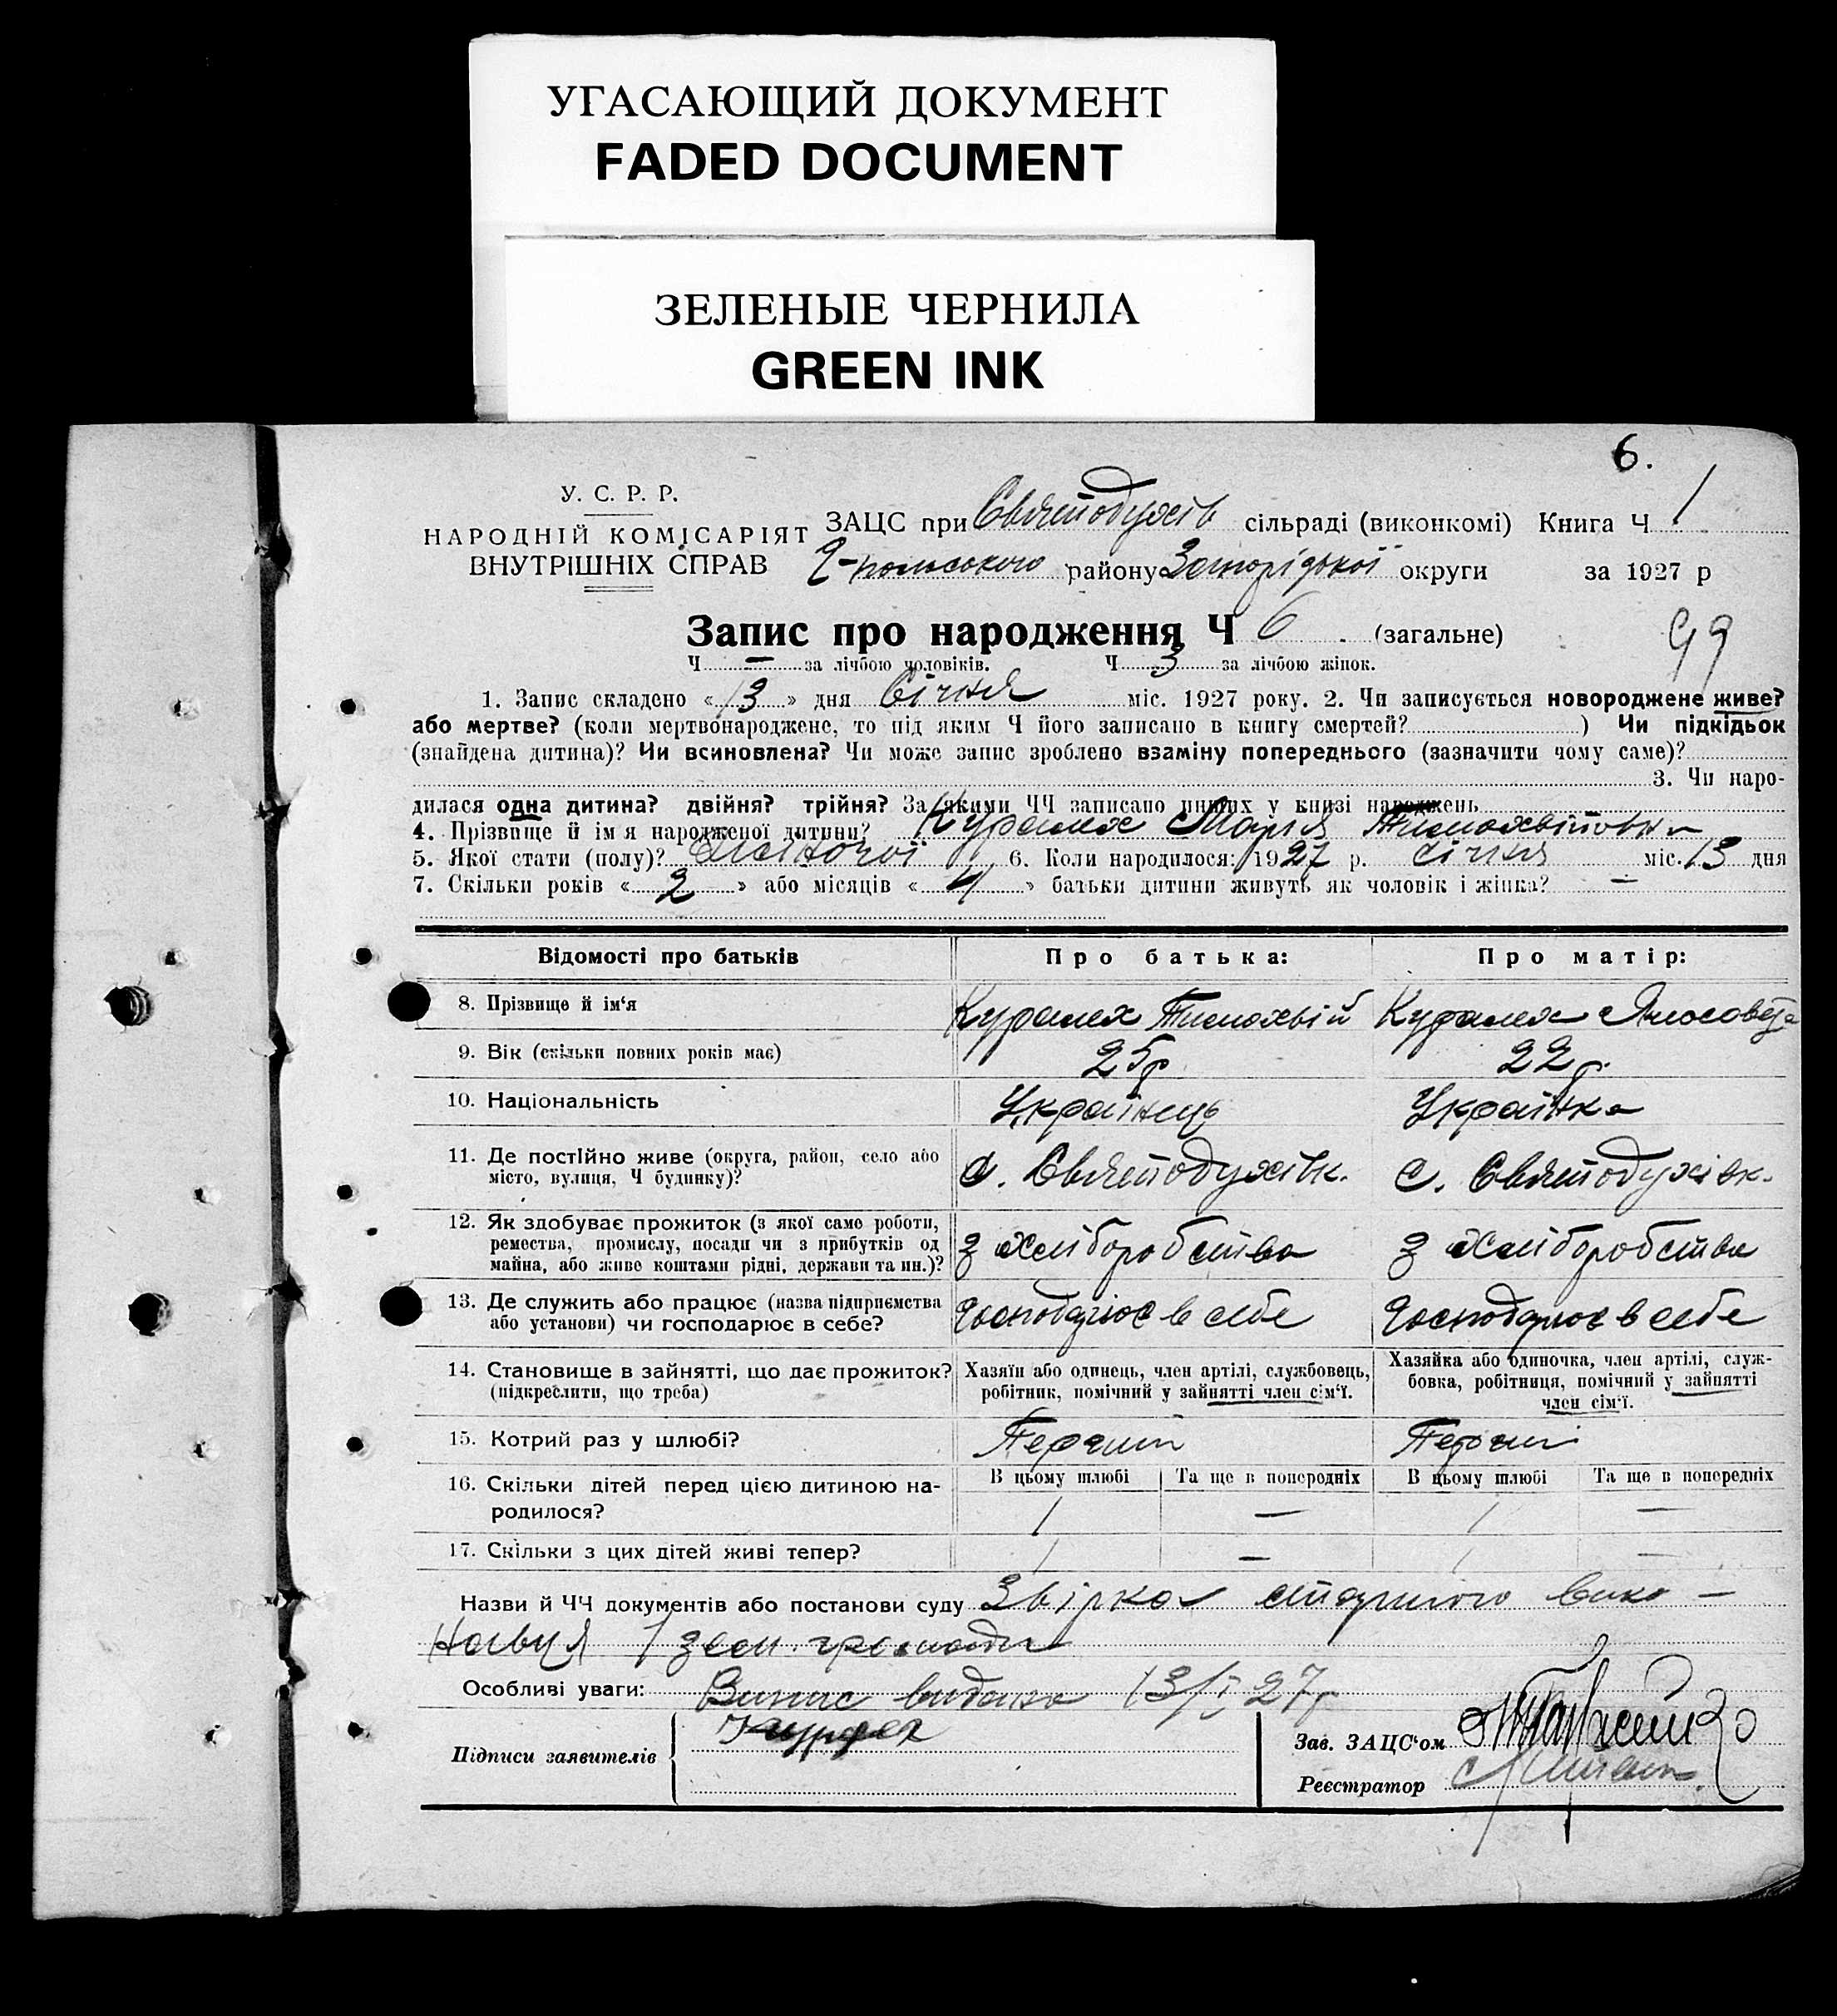 УГАСАЮЩИЙ ДОКУМЕНТ
FADED DOCUMENT
ЗЕЛЕНЫЕ ЧЕРНИЛА
GREEN INK
6.
У. С. Р. Р.
НАРОДНІЙ КОМІСАРІЯТ
ВНУТРІШНІХ СПРАВ
ЗАЦС при Святодухів сільраді (виконкомі) Книга Ч 1
Г-польського району Запорізької округи за 1927 р
Запис про народження Ч 6 (загальне)
99
Ч — за лічбою чоловіків. Ч 3 за лічбою жінок.
1. Запис складено «13» дня Січня міс. 1927 року. 2. Чи записується новороджене живе?
або мертве? (коли мертвонароджене, то під яким Ч його записано в книгу смертей? ) Чи підкідьок
(знайдена дитина)? Чи всиновлена? Чи може запис зроблено взаміну попереднього (зазначити чому саме)?
3. Чи наро-
дилася одна дитина? двійня? трійня? За якими ЧЧ записано инших у книзі народжень
4. Прізвище й ім я народженої дитини? Марія Тимохвіївна
5. Якої стати (полу)? Жіночої 6. Коли народилося: 1927 р. січня міс. 13 дня
7. Скільки років «2» або місяців «4» батьки дитини живуть як чоловік і жінка? —
Відомості про батьків Про батька: Про матір:
8. Прізвище й ім‘я Тимохвій
9. Вік (скільки повних років має) 25р 22р.
10. Національність Українець Українка
11. Де постійно живе (округа, район, село або
місто, вулиця, Ч будинку)? с. Святодухівк. с. Святодухівк.
12. Як здобуває прожиток (з якої само роботи,
ремества, промислу, посади чи з прибутків од
майна, або живе коштами рідні, держави та ин.)? з хліборобства з хліборобства
13. Де служить або працює (назва підприємства
або установи) чи господарює в себе? Господарює в себе Господарює в себе
14. Становище в зайнятті, що дає прожиток?
(підкреслити, що треба)
Хазяїн або одинець, член артілі, службовець,
робітник, помічний у зайнятті член сім‘ї.
Хазяйка або одиночка, член артілі, служ-
бовка, робітниця, помічний у зайнятті
член сім‘ї.
15. Котрий раз у шлюбі? Перший Перший
16. Скільки дітей перед цією дитиною на-
родилося?
В цьому шлюбі Та ще в попередніх В цьому шлюбі Та ще в попередніх
1 — 1 —
17. Скільки з цих дітей живі тепер? 1 — 1 —
Назви й ЧЧ документів або постанови суду Звірка старшого вико-
навця 1 зем. громади
Особливі уваги: Випис видано 13/I 27р
Підписи заявителів
Зав. ЗАЦС‘ом
Реєстратор